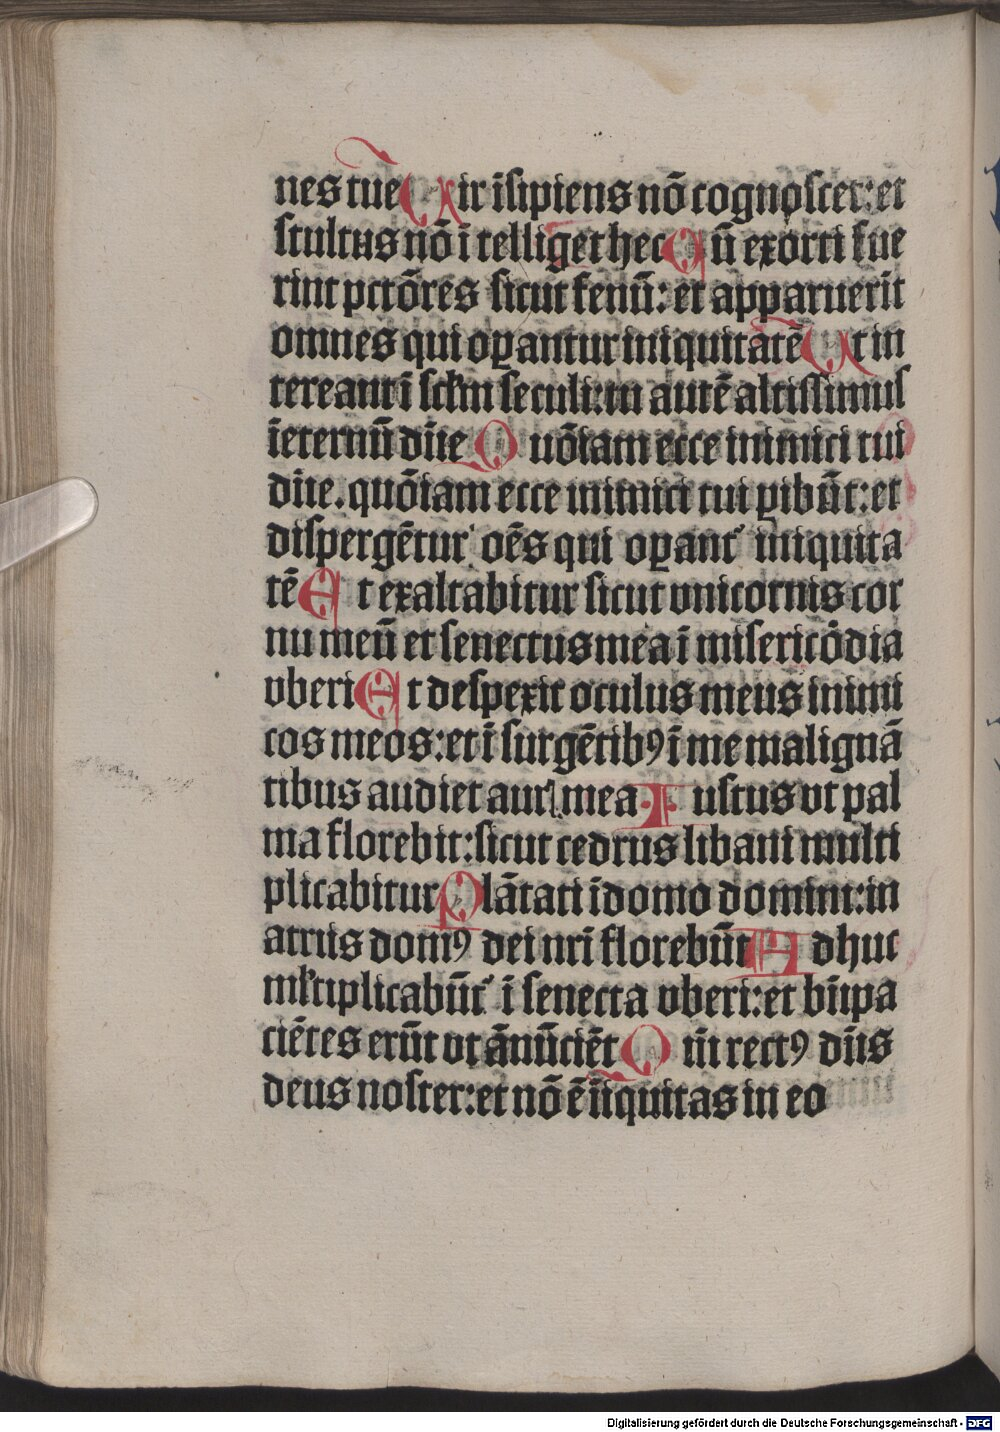 nes tue Uir isipiens nō cognoscet: et
stultus nō i telliget hec Q ū exorti fue
rint pctōres sicut fenū: et apparuerit
omnes qui oꝑantur iniquitatē Ut in
tereant i sclm seculi: tu autē altissimus
ieternū dn̄e Quōiam ecce inimici tui
dn̄e. quōiam ecce inimici tui ꝑibūt: et
dispergētur oēs qui oꝑant᷑ iniquita
tē Et exaltabitur sicut vnicornis cor
nu meū et senectus mea ī misericōdia
vberi Et despexit oculus meus inimi
cos meos: et i surgētibꝰ ī me malignā
tibus audiet auris mea Iustus vt pal
ma florebit: sicut cedrus libani multi
plicabitur Plātati idomo domini: in
atriis domꝰ dei nr̄i florebūt Adhuc
mltiplicabūt᷑ ī senecta vberi: et bn̄ipa
ciētes erūt vt ānūciēt Qm̄ rectꝰ dn̄s
deus noster: et nō ē iiquitas in eo
Digitalisierung gefördert durch die Deutsche Forschungsgemeinschaft - DFG